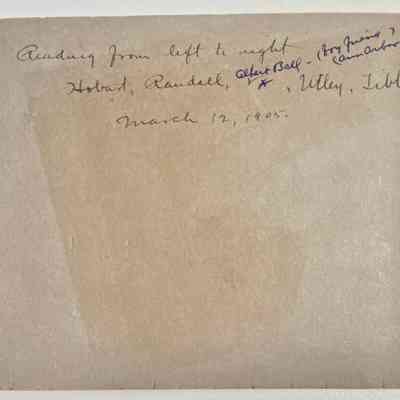 Reading from left to right
Hobart, Randall, Albert Ball - (boy friend ?
x , Utley, Tibb
(Ann Arbor
March 12, 1905.